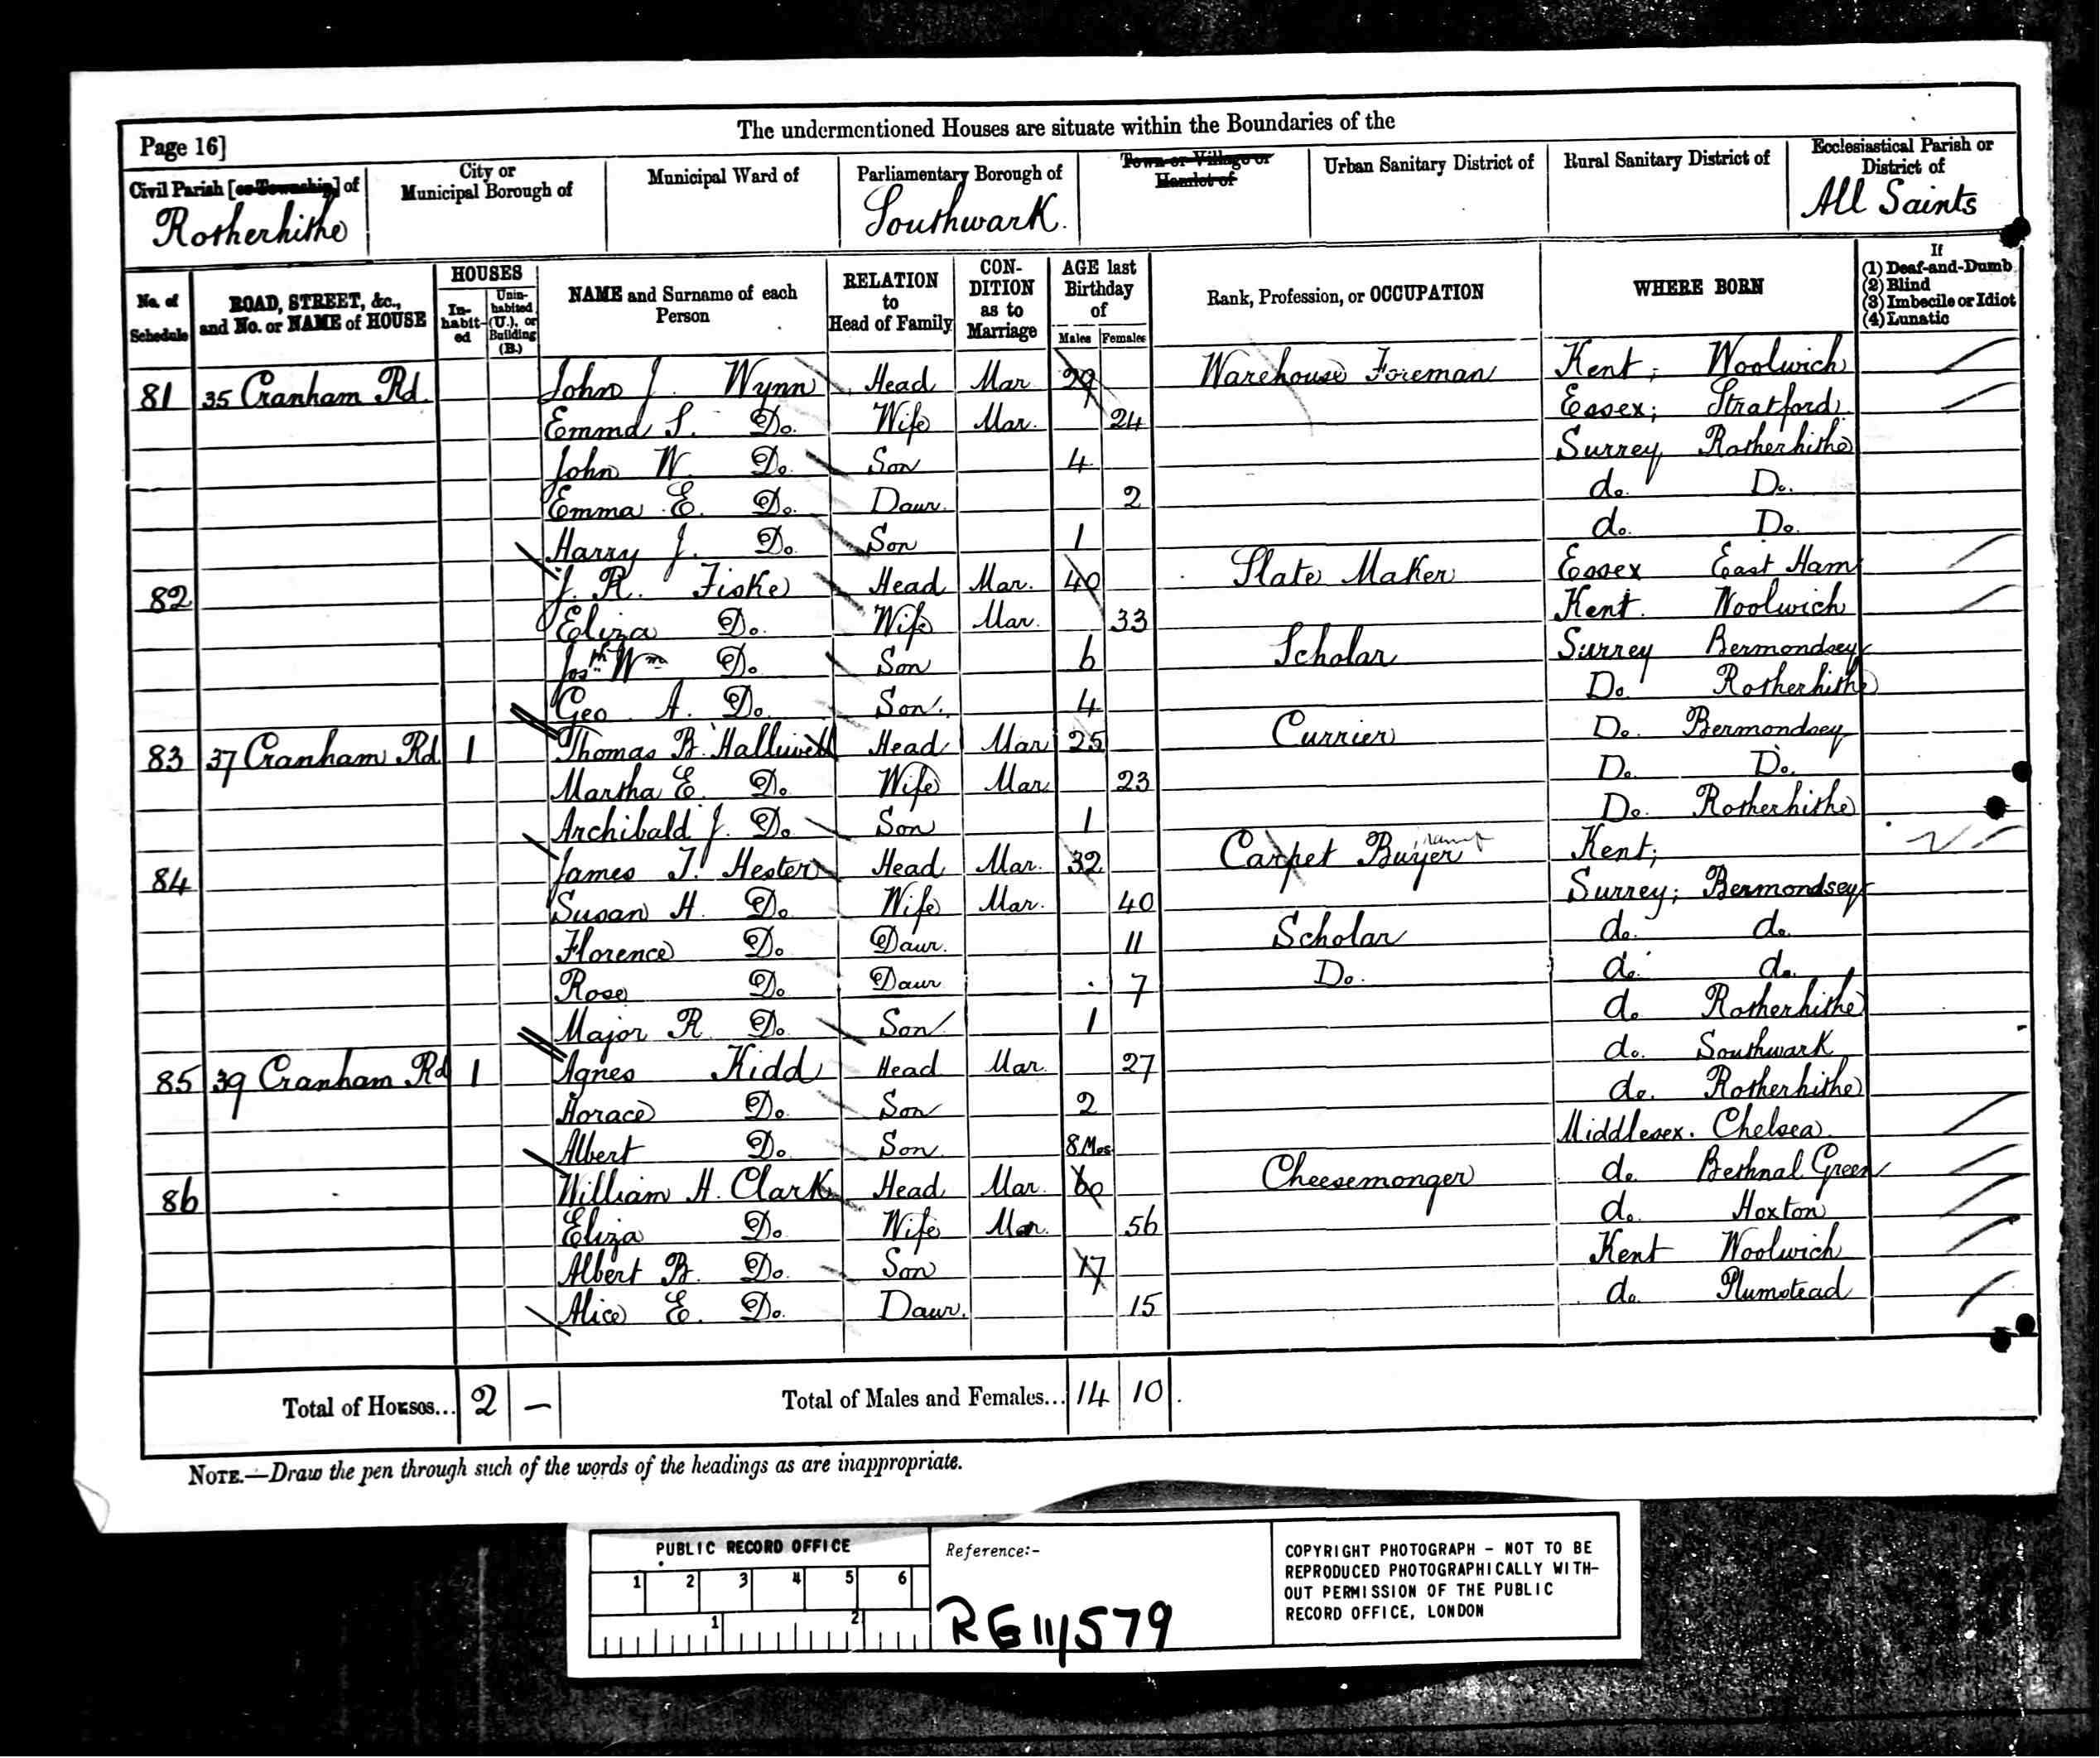 The undermentioned Houses are situate within the Boundaries of the
Page 16]
Civil Parish [or Township] of
Rotherhithe
City or
Municipal Borough of
Municipal Ward of
Parliamentary Borough of
Southwark.
Town or Village or
Hamlet of
Urban Sanitary District of
Rural Sanitary District of
Ecclesiastical Parish or
District of
All Saints
No. of
Schedule
ROAD, STREET, &c.,
and No. or NAME of HOUSE
HOUSES
In-
habit-
ed
Unin-
habited
(U.), or
Building
(B.)
NAME and Surname of each
Person
RELATION
to
Head of Family
CON-
DITION
as to
Marriage
AGE last
Birthday
of
Males Females
Rank, Profession, or OCCUPATION
WHERE BORN
If
(1) Deaf-and-Dumb
(2) Blind
(3) Imbecile or Idiot
(4) Lunatic
81 35 Cranham Rd. John J. Wynn Head Mar 29 Warehouse Foreman Kent; Woolwich
Emma S. Do. Wife Mar. 24 Essex; Stratford
John W. Do. Son 4 Surrey Rotherhithe
Emma E. Do. Daur. 2 do. Do.
Harry J. Do. Son 1 do. Do.
82 J. R. Fiske Head Mar. 40 Slate Maker Essex East Ham
Eliza Do. Wife Mar. 33 Kent. Woolwich
Josph Wm Do. Son 6 Scholar Surrey Bermondsey
Geo A. Do. Son. 4 Do Rotherhithe
83 37 Cranham Rd 1 Thomas B. Halliwell Head Mar 25 Currier Do. Bermondsey
Martha E. Do. Wife Mar 23 Do. Do.
Archibald J. Do. Son 1 Do. Rotherhithe
84 James T. Hester Head Mar. 32 Carpet Buyer Kent;
Susan H. Do. Wife Mar. 40 Surrey; Bermondsey
Florence Do. Daur. 11 Scholar do. do.
Rose Do. Daur 7 Do. do. do.
Major R. Do. Son 1 do. Rotherhithe
85 39 Cranham Rd 1 Agnes Kidd Head Mar. 27 do. Southwark
Horace Do. Son 2 do. Rotherhithe
Albert Do. Son 8 Mos Middlesex. Chelsea.
86 William H. Clark Head Mar. 60 Cheesemonger do. Bethnal Green
Eliza Do. Wife Mar. 56 do. Hoxton
Albert B. Do. Son 17 Kent Woolwich
Alice E. Do. Daur. 15 do. Plumstead
Total of Houses... 2 — Total of Males and Females... 14 10
NOTE.—Draw the pen through such of the words of the headings as are inappropriate.
PUBLIC RECORD OFFICE
1 2 3 4 5 6
1 2
Reference:-
RG 11/579
COPYRIGHT PHOTOGRAPH - NOT TO BE
REPRODUCED PHOTOGRAPHICALLY WITH-
OUT PERMISSION OF THE PUBLIC
RECORD OFFICE, LONDON